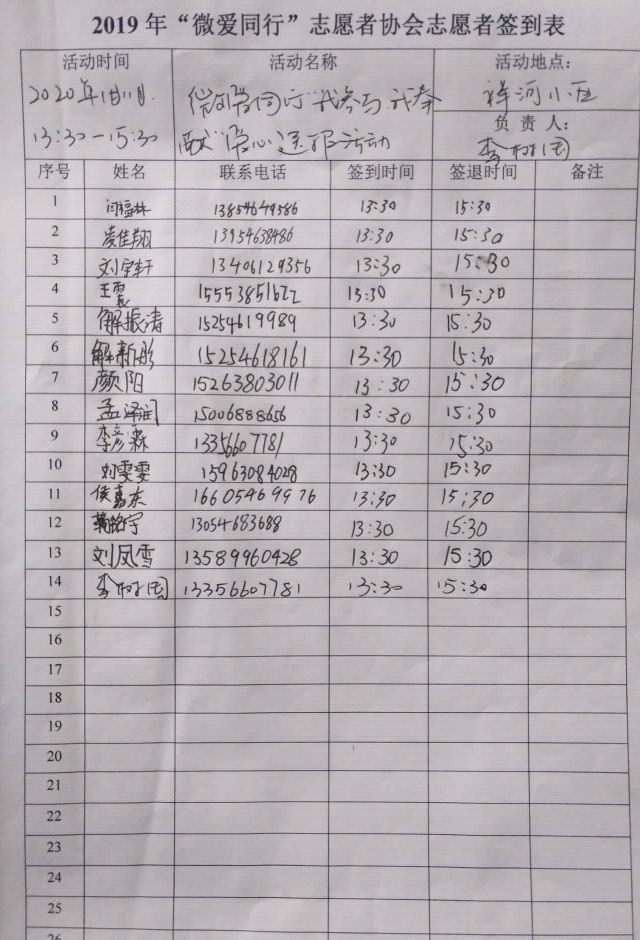 2019 年“微爱同行”志愿者协会志愿者签到表
活动时间 活动名称 活动地点：
2020年1月11日 微爱同行“我参与 我奉 祥河小区
负 责 人：
13:30-15:30 献”爱心送报活动
序号 姓名 联系电话 签到时间 签退时间 备注
1 闫福林 13854649586 13:30 15:30
2 凌佳翔 13954638486 13:30 15:30
3 刘宇轩 13406129356 13:30 15:30
4 王震 15553851622 13:30 15:30
5 解振涛 15254619989 13:30 15:30
6 解新彤 15254618161 13:30 15:30
7 颜阳 15263803011 13:30 15:30
8 孟泽闰 15006888656 13:30 15:30
9 李彦霖 13356607781 13:30 15:30
10 刘雯雯 15963084028 13:30 15:30
11 侯嘉东 16605469976 13:30 15:30
12 13054683688 13:30 15:30
13 刘凤雪 13589960428 13:30 15:30
14 13356607781 13:30 15:30
15
16
17
18
19
20
21
22
23
24
25
26